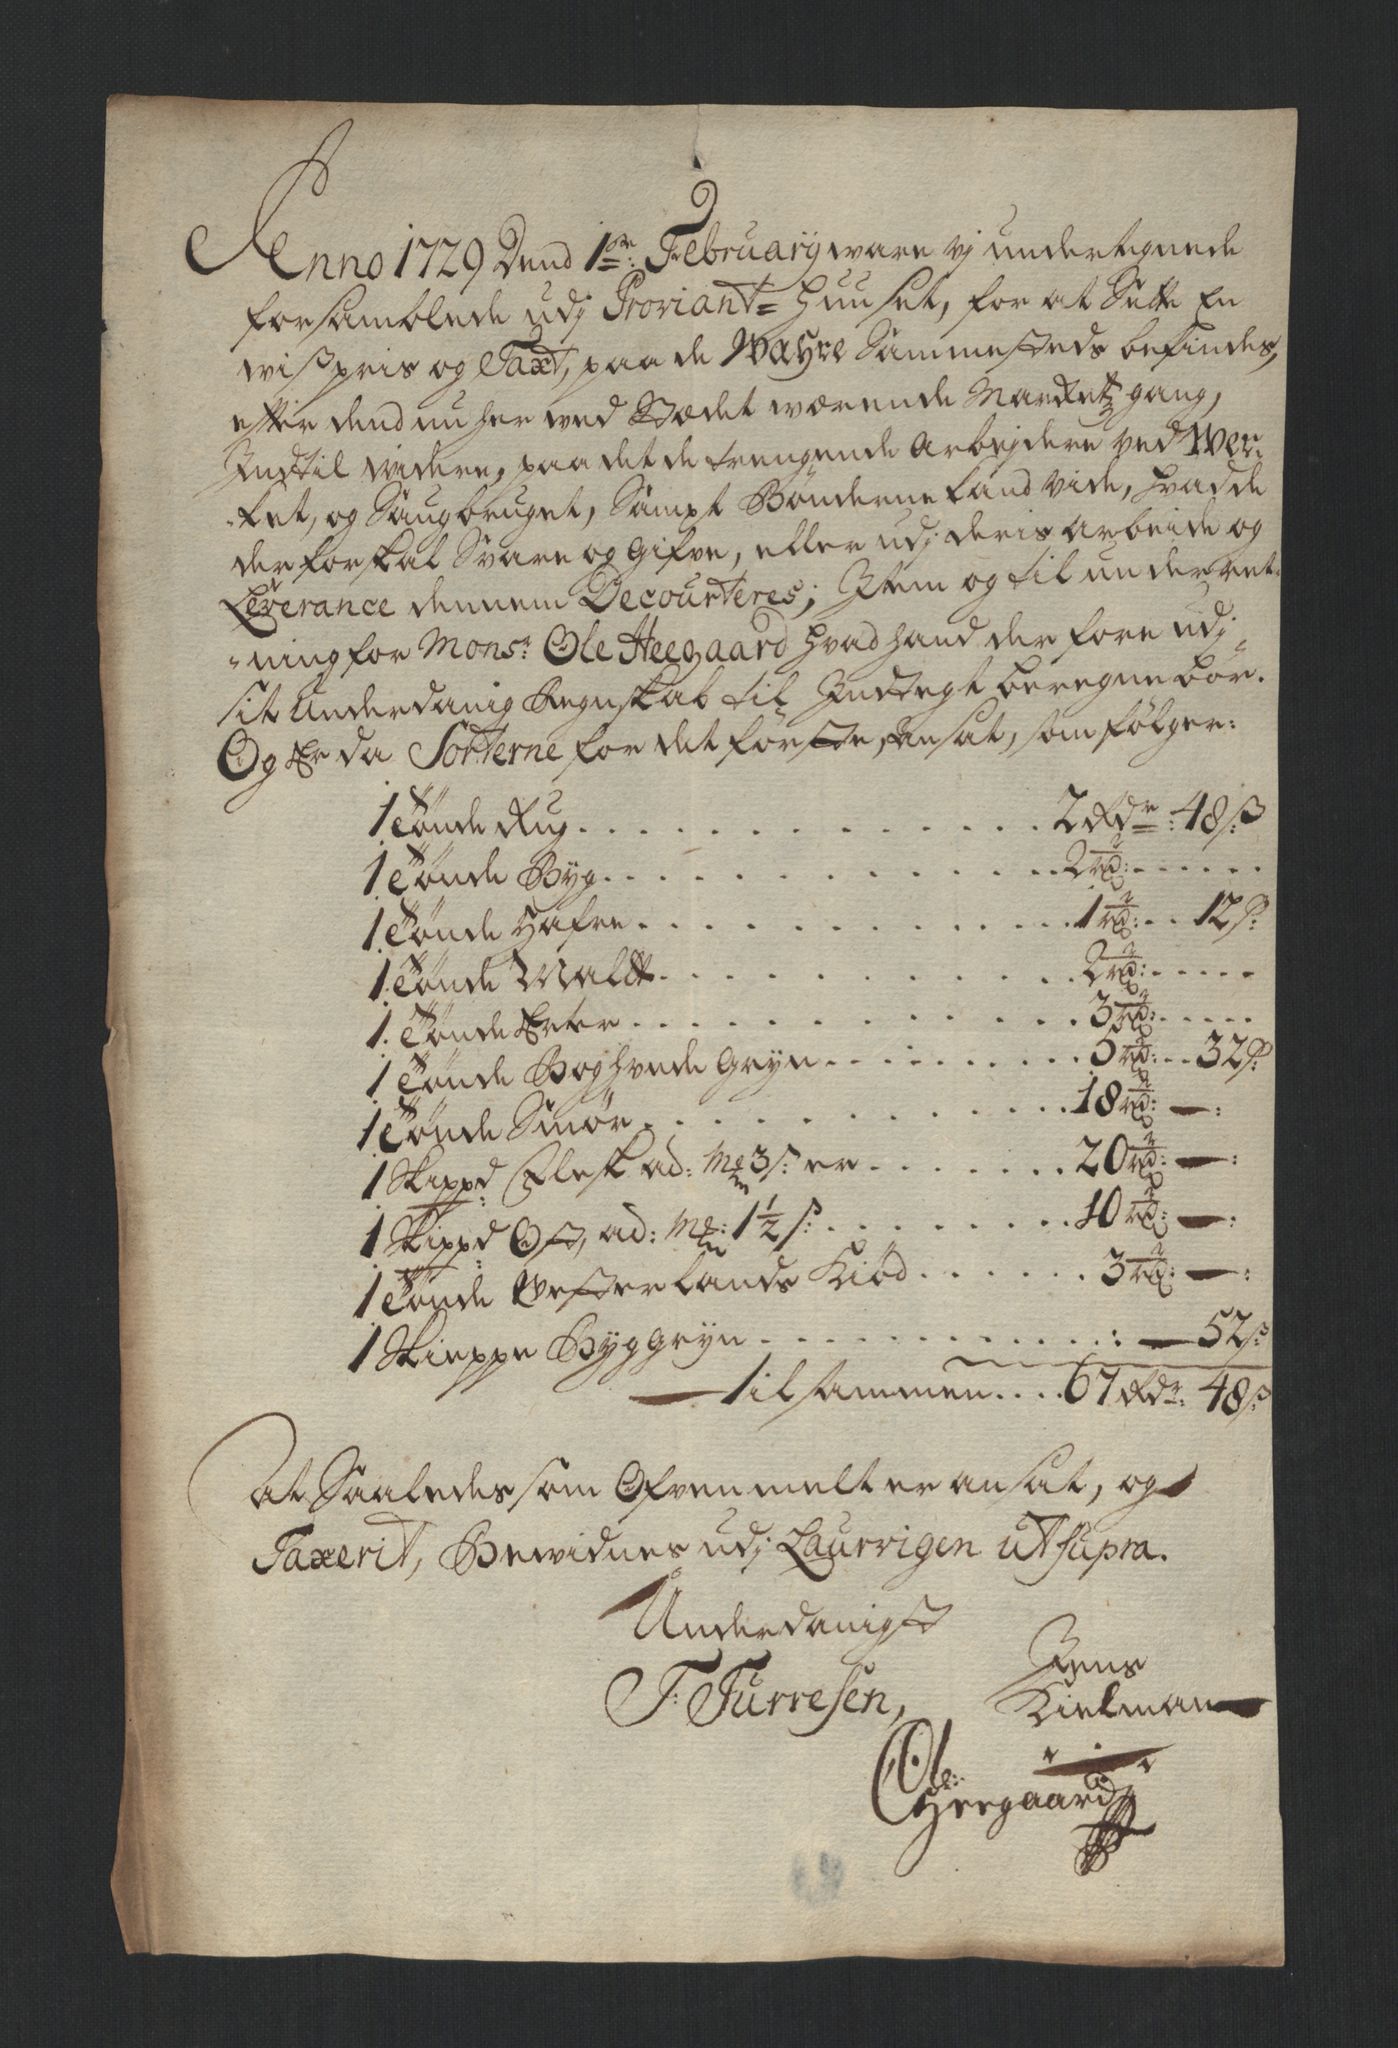 Anno 1729 Dend 1ste: February ware vj undertegnede
forsamblede udj Proviant= Huuset, for at Sette En
wiss pris og Taxt, paa de Wahre Sammesteds befindes,
efter dend nu her ved Stædet wærende Marketz gang,
Indtil widere, paa det de trengende Arbejdere ved Wer-
-ket, og Saugbruget, Sampt Bønderne kand vide, hvad de
derfor skal Svare og Gifve, eller udj deris arbeide og
Leverance dennem Decourteres; Item og til underret-
-ning for Monsr: Ole Heegaard hvad hand der fore udj
sit Underdanig Regnskab til Indtegt beregne bör.
Og Er da Sorterne for det förste, ansat, som fölger:
1 Tønde Rug . . . . . 2 Rdr: 48 ß
1 Tønde Byg . . . . . 2 rd: - - - -
1 Tønde Hafre . . . . . 1 rd: - - 12 ß:
1 Tønde Maltt . . . . . 2 rd: - - - -
1 Tønde Erter . . . . . 3 rd: - - - -
1 Tønde Boghvede Gryn . . . . . 5 rd: - - 32 ß:
1 Tønde Smör . . . . . 18 rd: —:
1 Skippd: Flesk ad: Mk 3 ß: er . . . . . 20 rd: —:
1 Skippd: Ost, ad: Mk: 1 1/2 ß: . . . . . 10 rd: —:
1 Tønde Vesterlands Kiöd . . . . . 3 rd: —:
1 Skieppe Byg Gryn . . . . . : — 52 ß:
Tilsammen . . . . 67 Rdr: 48 ß
At Saaledes som Ofvenmelt er ansat, og
Taxerit, Bewidnes udj Laurvigen ut supra.
Underdanigst
T: Turresen,
Jens
Kielman
Ole:
Heegaard